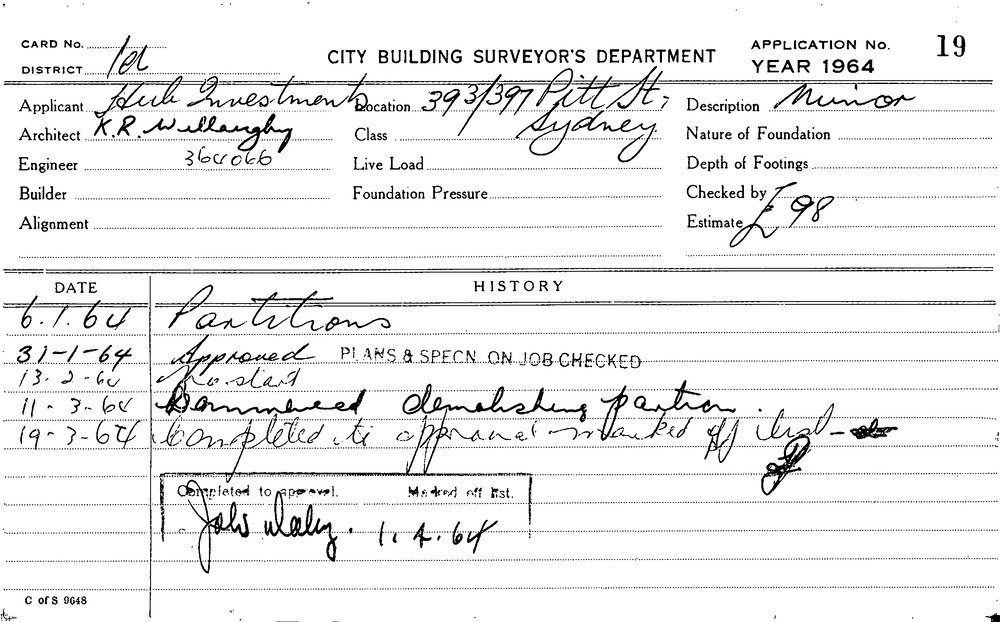 CARD No.
CITY BUILDING SURVEYOR'S DEPARTMENT
APPLICATION No. 19
DISTRICT
YEAR 1964
Applicant Hub Investments Location 393/397 Pitt St, Description Minor
Sydney
Architect K.R. Willoughby Class Nature of Foundation
Engineer Live Load Depth of Footings
Builder Foundation Pressure Checked by
Alignment Estimate £98
DATE HISTORY
6.1.64 Partitions
31-1-64 Approved PLANS & SPECN. ON JOB CHECKED
13-2-64 No start
11-3-64 Commenced demolishing partion.
19-3-64 Completed to approval marked off list
Completed to approval. Marked off list.
1.4.64
C of S 9648